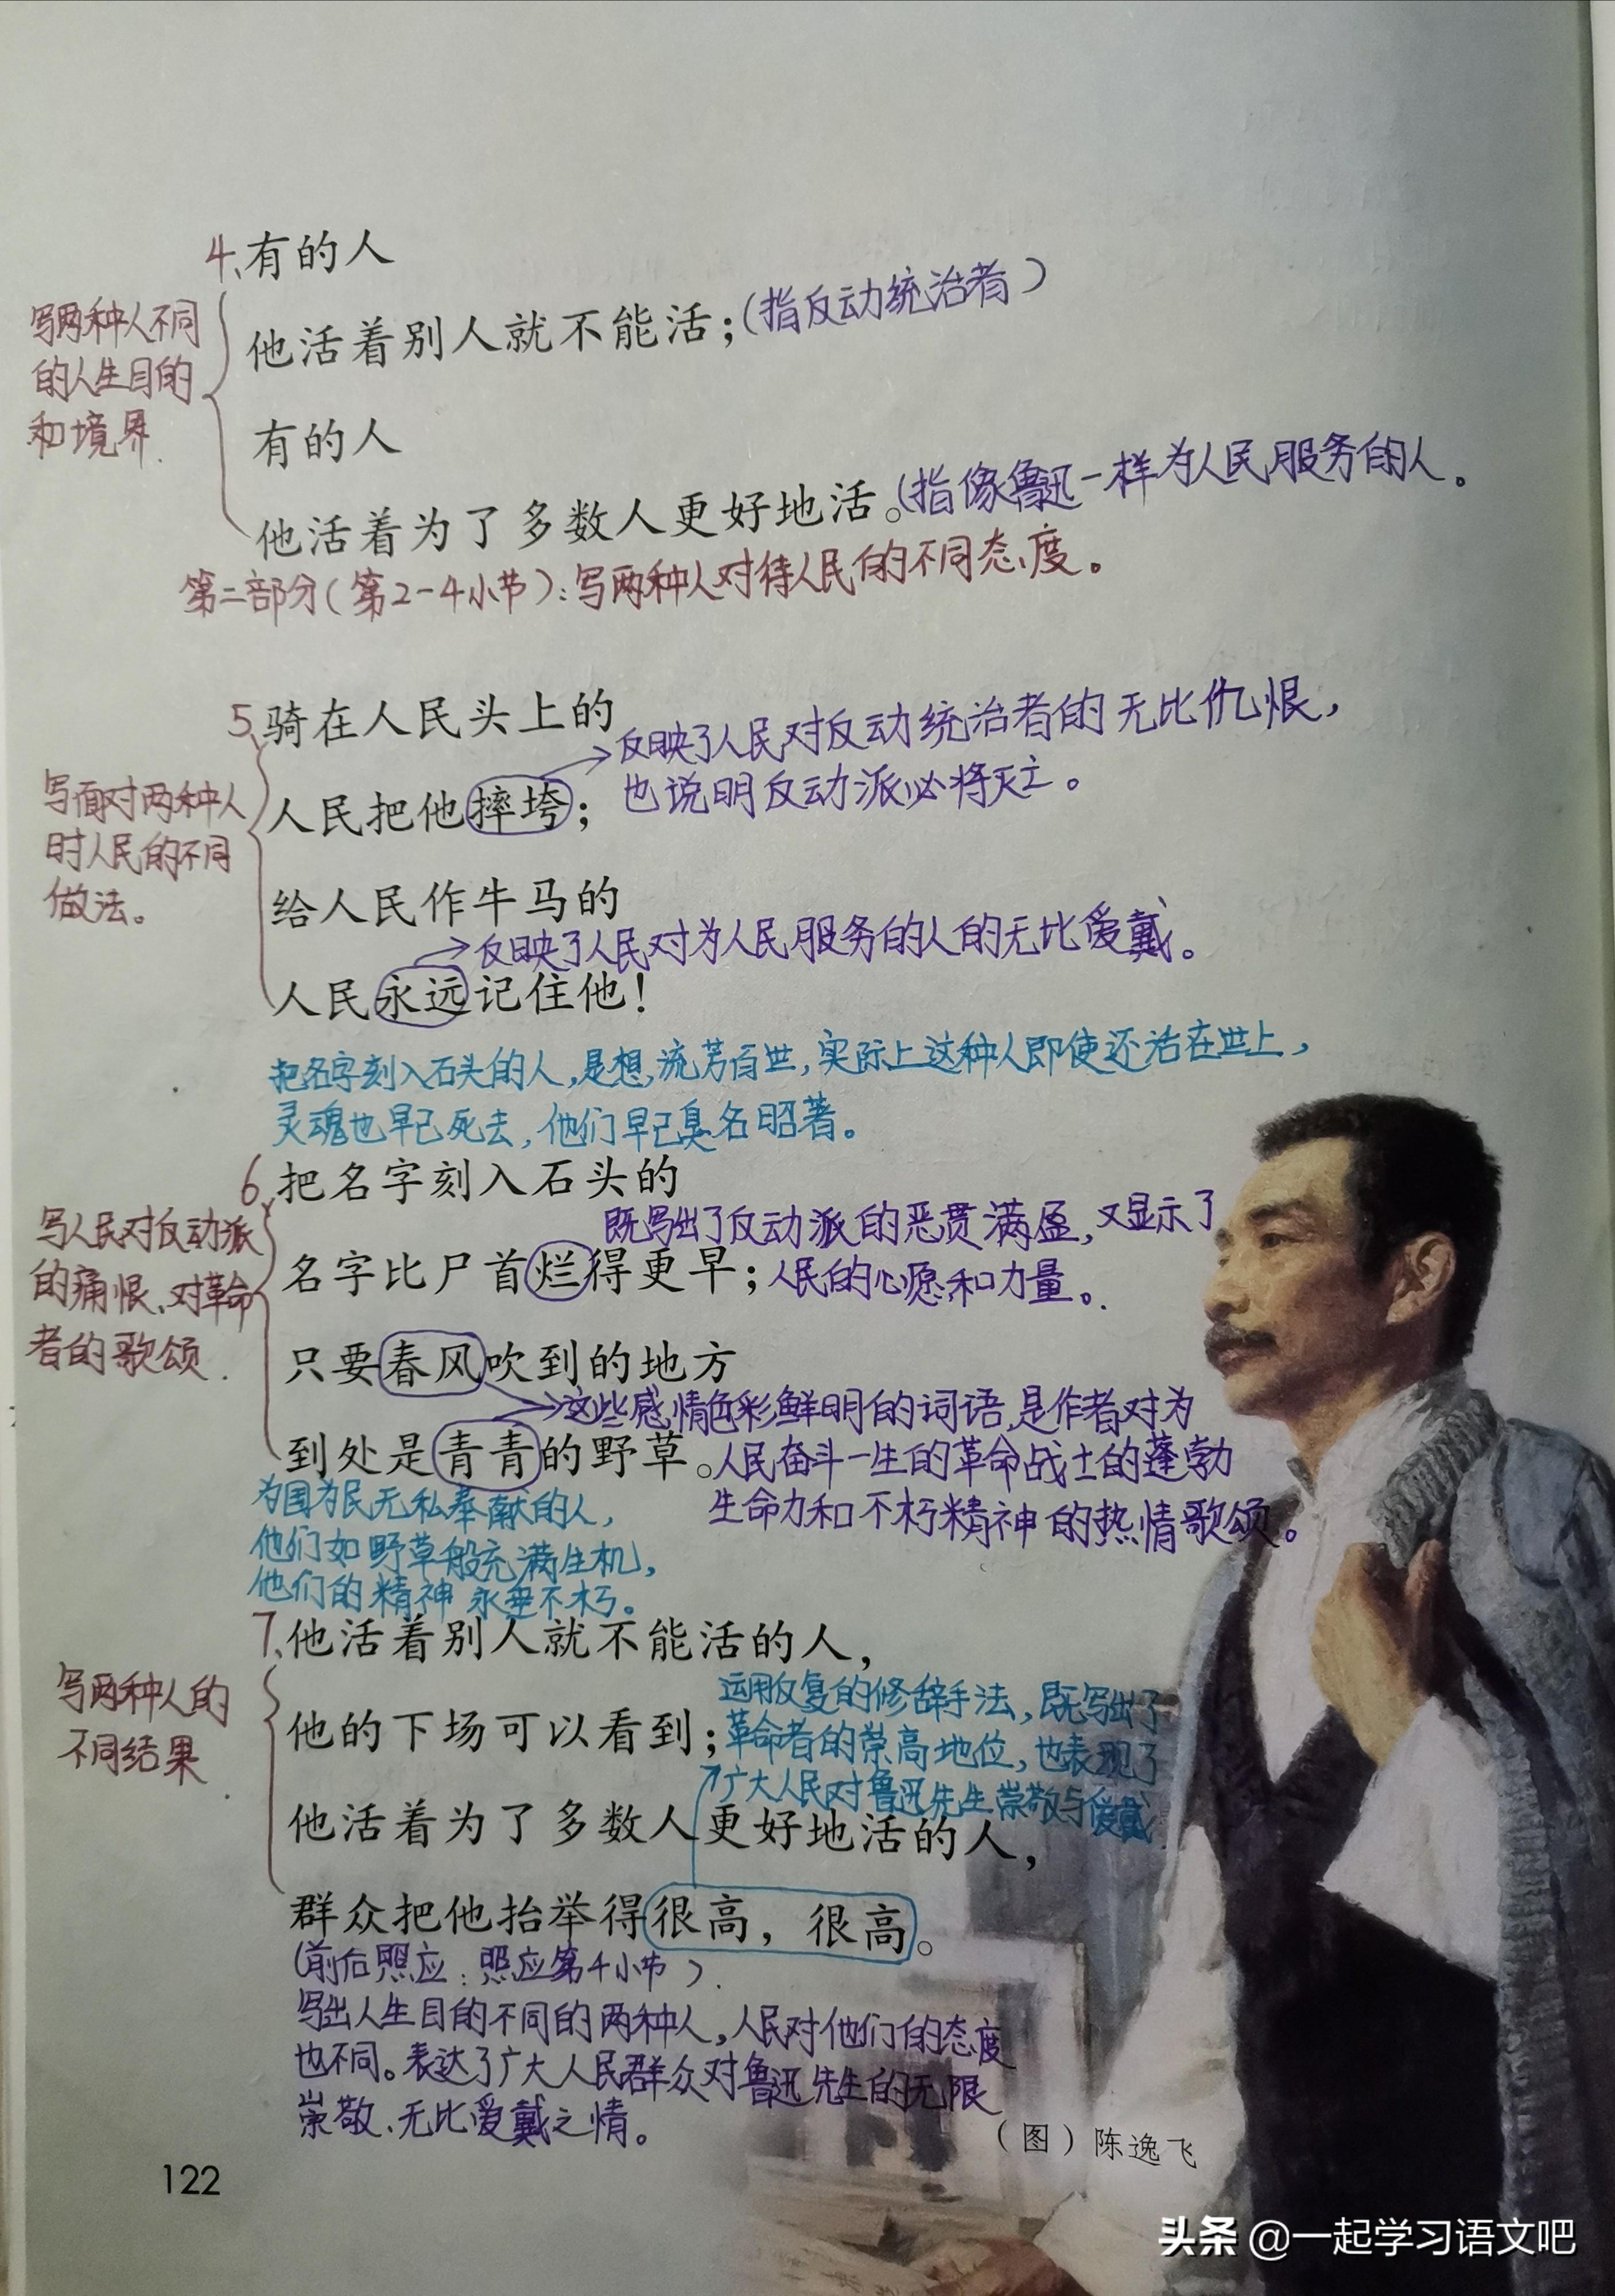 4、有的人
他活着别人就不能活；(指反动统治者)
写两种人不同
的人生目的
和境界.
有的人
他活着为了多数人更好地活。(指像鲁迅一样为人民服务的人。
第二部分(第2-4小节)：写两种人对待人民的不同态度。
5、骑在人民头上的
反映了人民对反动统治者的无比仇恨，
也说明反动派必将灭亡。
人民把他摔垮；
写面对两种人
时人民的不同
做法。
给人民作牛马的
反映了人民对为人民服务的人的无比爱戴。
人民永远记住他！
把名字刻入石头的人，是想流芳百世，实际上这种人即使还活在世上，
灵魂也早已死去，他们早已臭名昭著。
6、把名字刻入石头的
既写出了反动派的恶贯满盈，又显示了
名字比尸首烂得更早；人民的心愿和力量。
写人民对反动派
的痛恨、对革命
者的歌颂.
只要春风吹到的地方
这些感情色彩鲜明的词语，是作者对为
到处是青青的野草。人民奋斗一生的革命战士的蓬勃
生命力和不朽精神的热情歌颂。
为国为民无私奉献的人，
他们如野草般充满生机，
他们的精神永垂不朽。
7、他活着别人就不能活的人，
写两种人的
不同结果
运用反复的修辞手法，既写出了
他的下场可以看到；革命者的崇高地位，也表现了
广大人民对鲁迅先生崇敬与爱戴
他活着为了多数人更好地活的人，
群众把他抬举得很高，很高。
(前后照应：照应第4小节).
写出人生目的不同的两种人，人民对他们的态度
也不同。表达了广大人民群众对鲁迅先生的无限
崇敬、无比爱戴之情。
(图)陈逸飞
122
头条 @一起学习语文吧